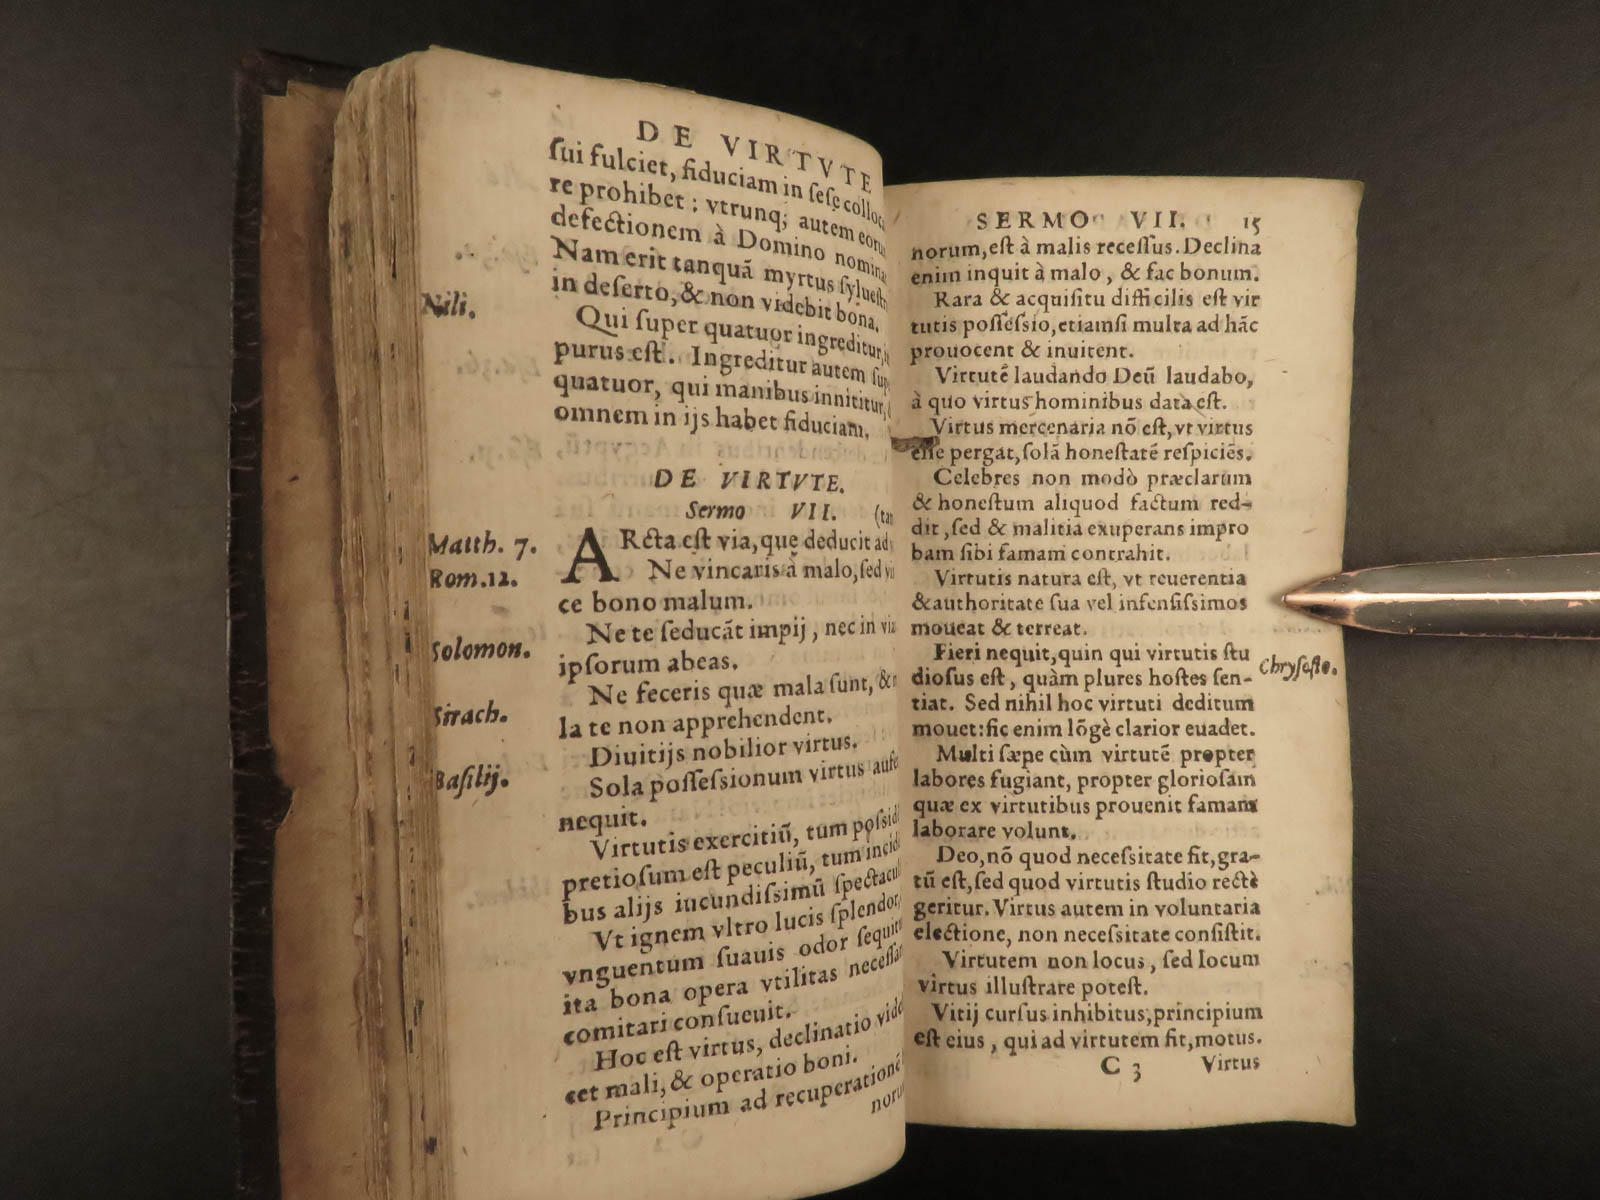 DE VIRTVTE
ſui fulciet, fiduciam in ſeſe colloc
re prohibet : vtrunq; autem eoru
defectionem à Domino nomina
Nam erit tanquã myrtus ſylueſtr
in deſerto, & non videbit bona.
Nili.
Qui ſuper quatuor ingreditur, i
purus eſt. Ingreditur autem ſup
quatuor, qui manibus innititur,
omnem in ijs habet fiduciam.
DE VIRTVTE.
Sermo VII. (tan
Matth. 7.
ARcta eſt via, quę deducit ad
Rom. 12.
Ne vincaris à malo, ſed vi
ce bono malum.
Solomon.
Ne te ſeducãt impij, nec in via
ipſorum abeas.
Sirach.
Ne feceris quæ mala ſunt, &
la te non apprehendent.
Baſilij.
Diuitijs nobilior virtus.
Sola poſſeſsionum virtus aufe
nequit.
Virtutis exercitiũ, tum poſsid
pretioſum eſt peculiũ, tum incid
bus alijs iucundiſsimũ ſpectacul
Vt ignem vltro lucis ſplendor,
vnguentum ſuauis odor ſequit
ita bona opera vtilitas neceſſar
comitari conſueuit.
Hoc eſt virtus, declinatio vide
cet mali, & operatio boni.
Principium ad recuperationẽ
noru
SERMO VII. 15
norum, eſt à malis receſſus. Declina
enim inquit à malo, & fac bonum.
Rara & acquiſitu difficilis eſt vir
tutis poſſeſsio, etiamſi multa ad hãc
prouocent & inuitent.
Virtutẽ laudando Deũ laudabo,
à quo virtus hominibus data eſt.
Virtus mercenaria nõ eſt, vt virtus
eſſe pergat, ſolã honeſtatẽ reſpiciẽs.
Celebres non modò præclarum
& honeſtum aliquod factum red-
dit, ſed & malitia exuperans impro
bam ſibi famam contrahit.
Virtutis natura eſt, vt reuerentia
& authoritate ſua vel infenſiſsimos
moueat & terreat.
Fieri nequit, quin qui virtutis ſtu
Chryſoſto.
dioſus eſt, quàm plures hoſtes ſen-
tiat. Sed nihil hoc virtuti deditum
mouet: ſic enim lõgè clarior euadet.
Multi ſæpe cùm virtutẽ propter
labores fugiant, propter glorioſam
quæ ex virtutibus prouenit famam
laborare volunt.
Deo, nõ quod neceſsitate fit, gra-
tũ eſt, ſed quod virtutis ſtudio rectè
geritur. Virtus autem in voluntaria
electione, non neceſsitate conſiſtit.
Virtutem non locus, ſed locum
virtus illuſtrare poteſt.
Vitij curſus inhibitus, principium
eſt eius, qui ad virtutem fit, motus.
C 3 Virtus